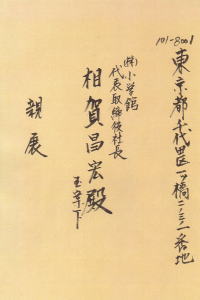 101-8001
東京都千代田区一ツ橋二ノ三ノ一番地
㈱小学館
代表取締役社長
相賀昌宏殿
玉案下
親展